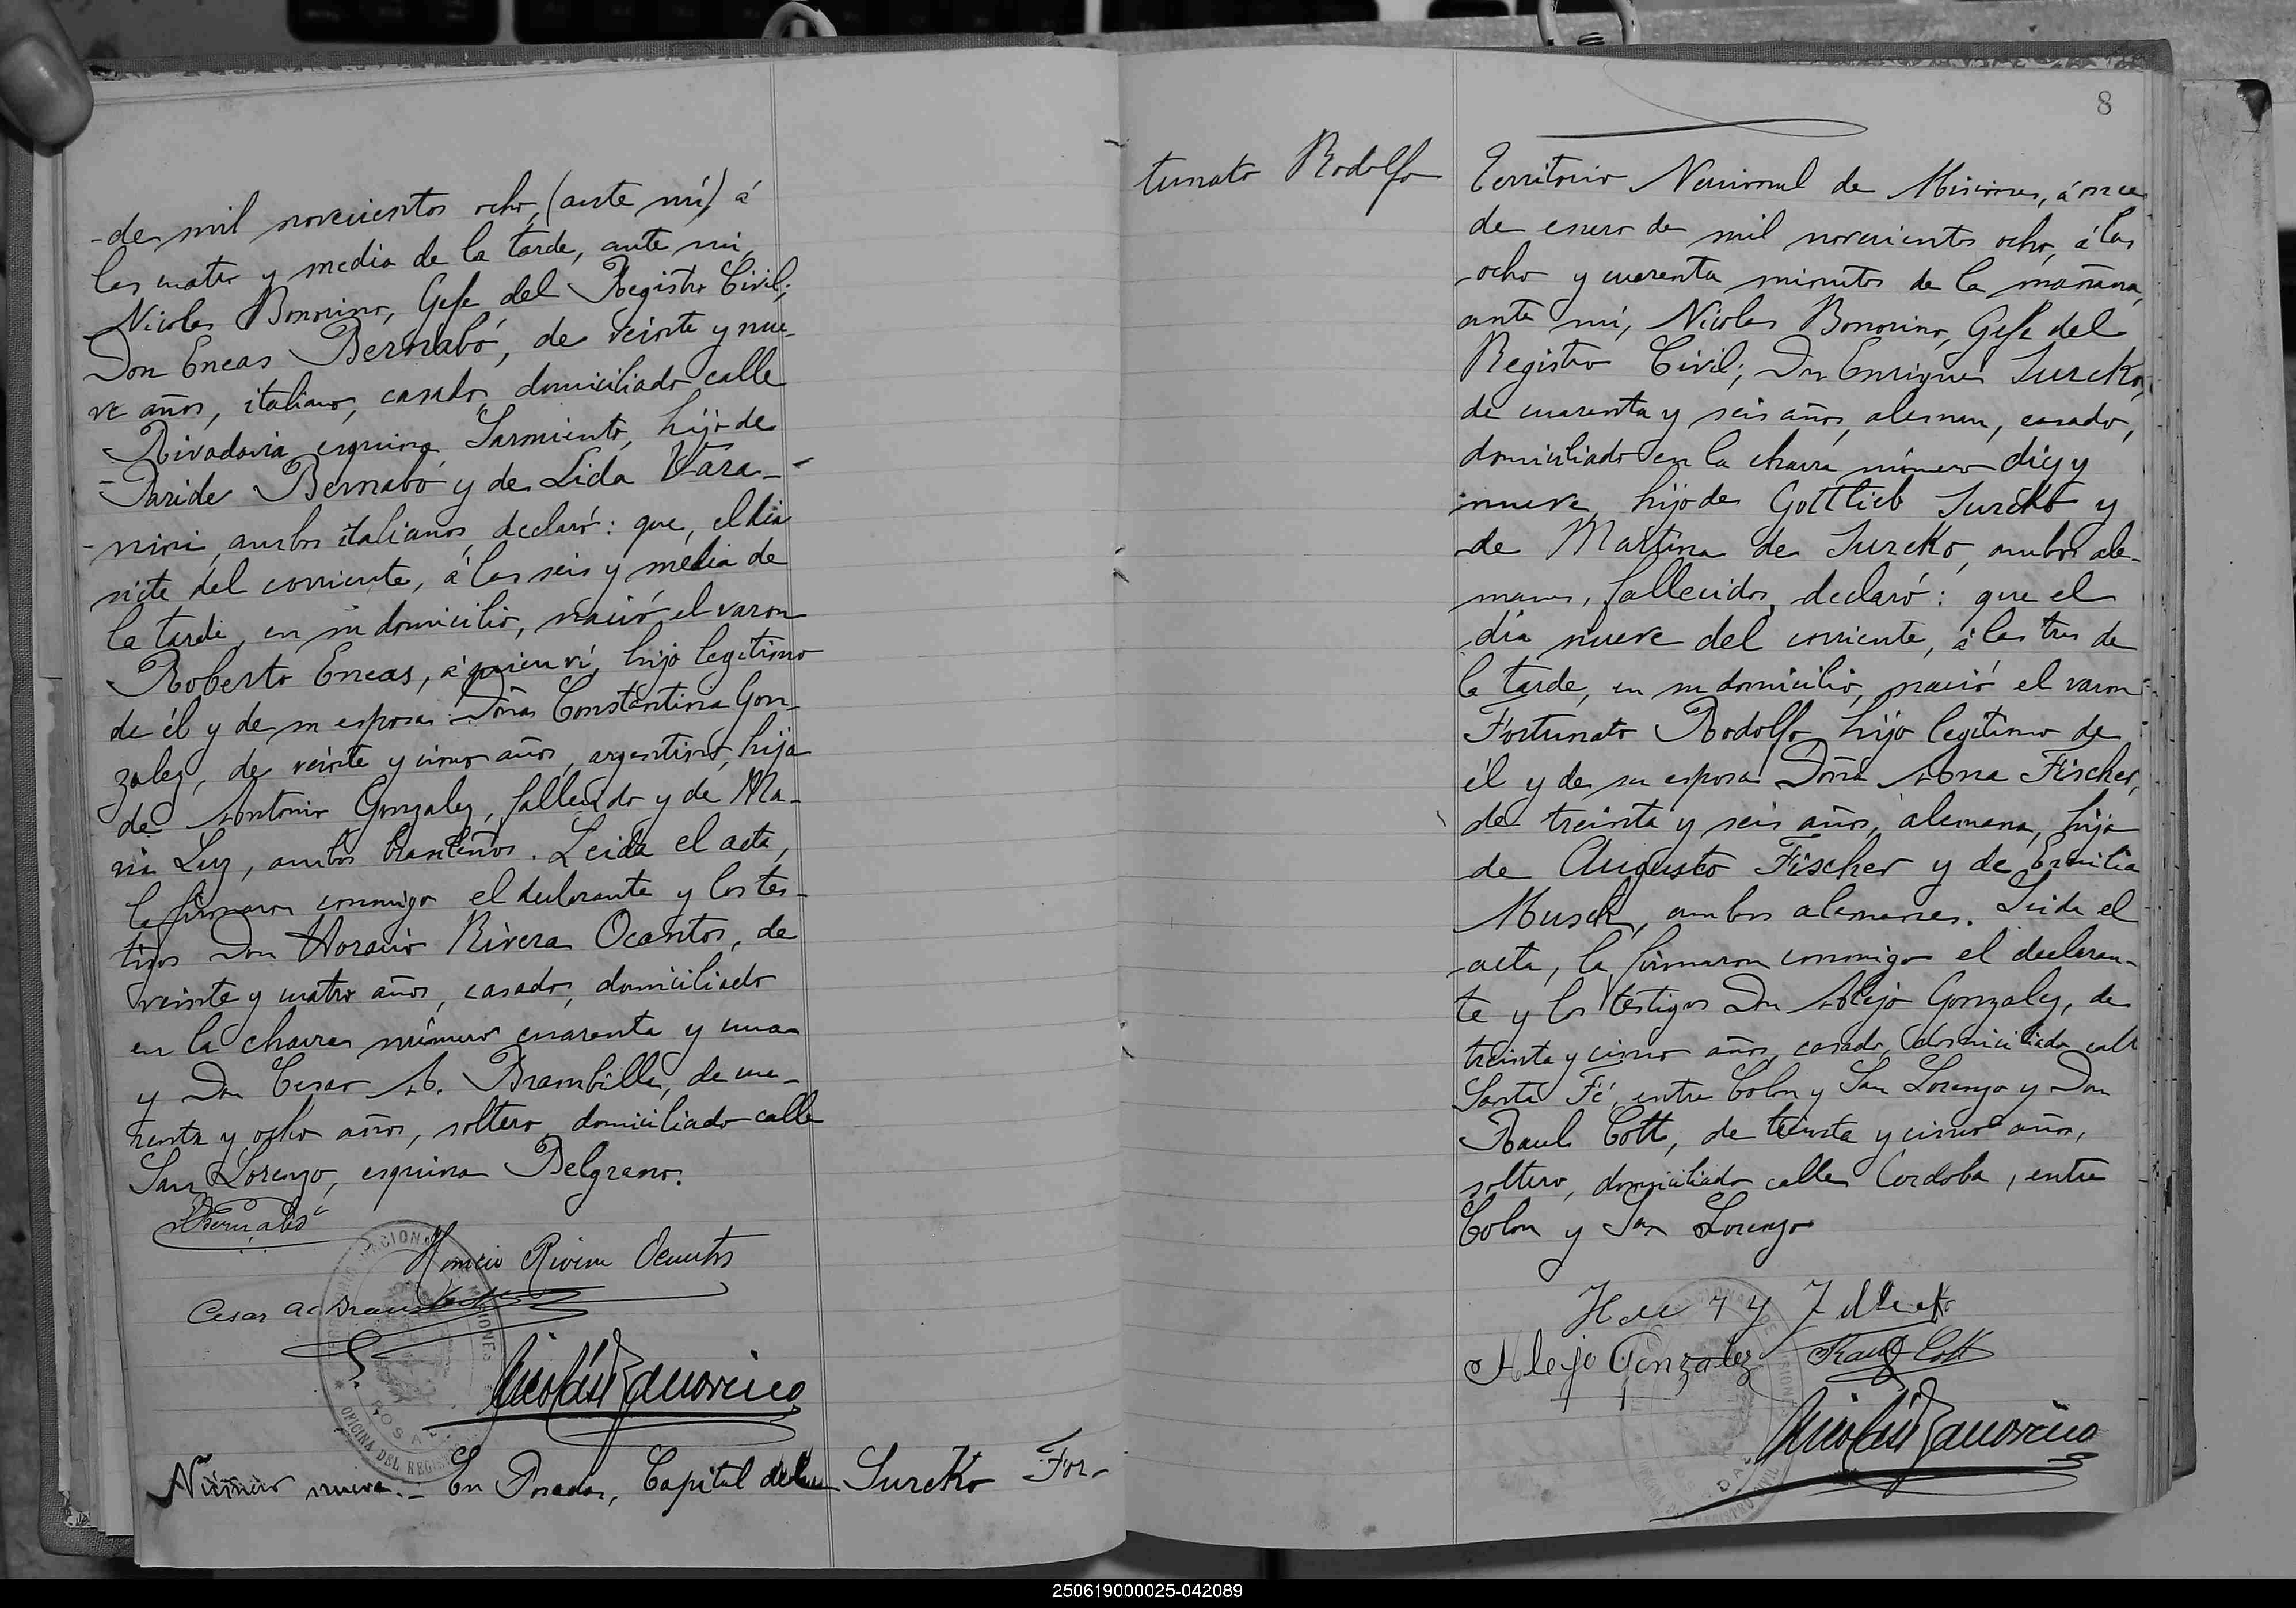 -de mil novecientos ocho, (ante mi) á
las cuatro y media de la tarde, ante mi,
Nicolas Bonorino, Gefe del Registro Civil;
Don Eneas Bernabó, de veinte y nue-
ve años, italiano, casado, domiciliado calle
Rivadavia esquina Sarmiento, hijo de
Paride Bernabó y de Lida Vara-
nini, ambos italianos, declaró: que, el dia
siete del corriente, á las seis y media de
la tarde, en su domicilio, nació el varon
Roberto Eneas, á quien ví, hijo legitimo
de él y de su esposa Doña Constantina Gon-
zalez, de veinte y cinco años, argentina, hija
de Antonio Gonzalez, fallecido y de Ma-
ria Luz, ambos brasileños. Leida el acta,
la firmaron conmigo el declarante y los tes-
tigos Don Horacio Rivera Ocantos, de
veinte y cuatro años, casado, domiciliado
en la chacra número cuarenta y una
y Don Cesar A. Brambilla, de cua-
renta y ocho años, soltero, domiciliado calle
San Lorenzo, esquina Belgrano.
EBernabó
Horacio Rivera Ocantos
Cesar A
Nicolás Bonorino
Número nueve.- En Posadas, Capital del
Surcko For-
tunato Rodolfo
8
Territorio Nacional de Misiones, á once
de enero de mil novecientos ocho, á las
ocho y cuarenta minutos de la mañana,
ante mí, Nicolas Bonorino, Gefe del
Registro Civil; Don Enrique Surcko,
de cuarenta y seis años, aleman, casado,
domiciliado en la chacra número diez y
nueve, hijo de Gottlieb Surcko y
de Martina de Surcko, ambos ale-
manes, fallecidos, declaró: que el
dia nueve del corriente, á las tres de
la tarde, en su domicilio, nació el varon
Fortunato Rodolfo, hijo legitimo de
él y de su esposa Doña Ana Fischer,
de treinta y seis años, alemana, hija
de Augusto Fischer y de Emilia
Musch, ambos alemanes. Leida el
acta, la firmaron conmigo el declaran-
te y los testigos Don Alejo Gonzalez, de
treinta y cinco años, casado, domiciliado calle
Santa Fé, entre Colon y San Lorenzo y Don
Raul Cott, de treinta y cinco años,
soltero, domiciliado calle Cordoba, entre
Colon y San Lorenzo
Alejo Gonzalez
Raul Cott
Nicolás Bonorino
250619000025-042089